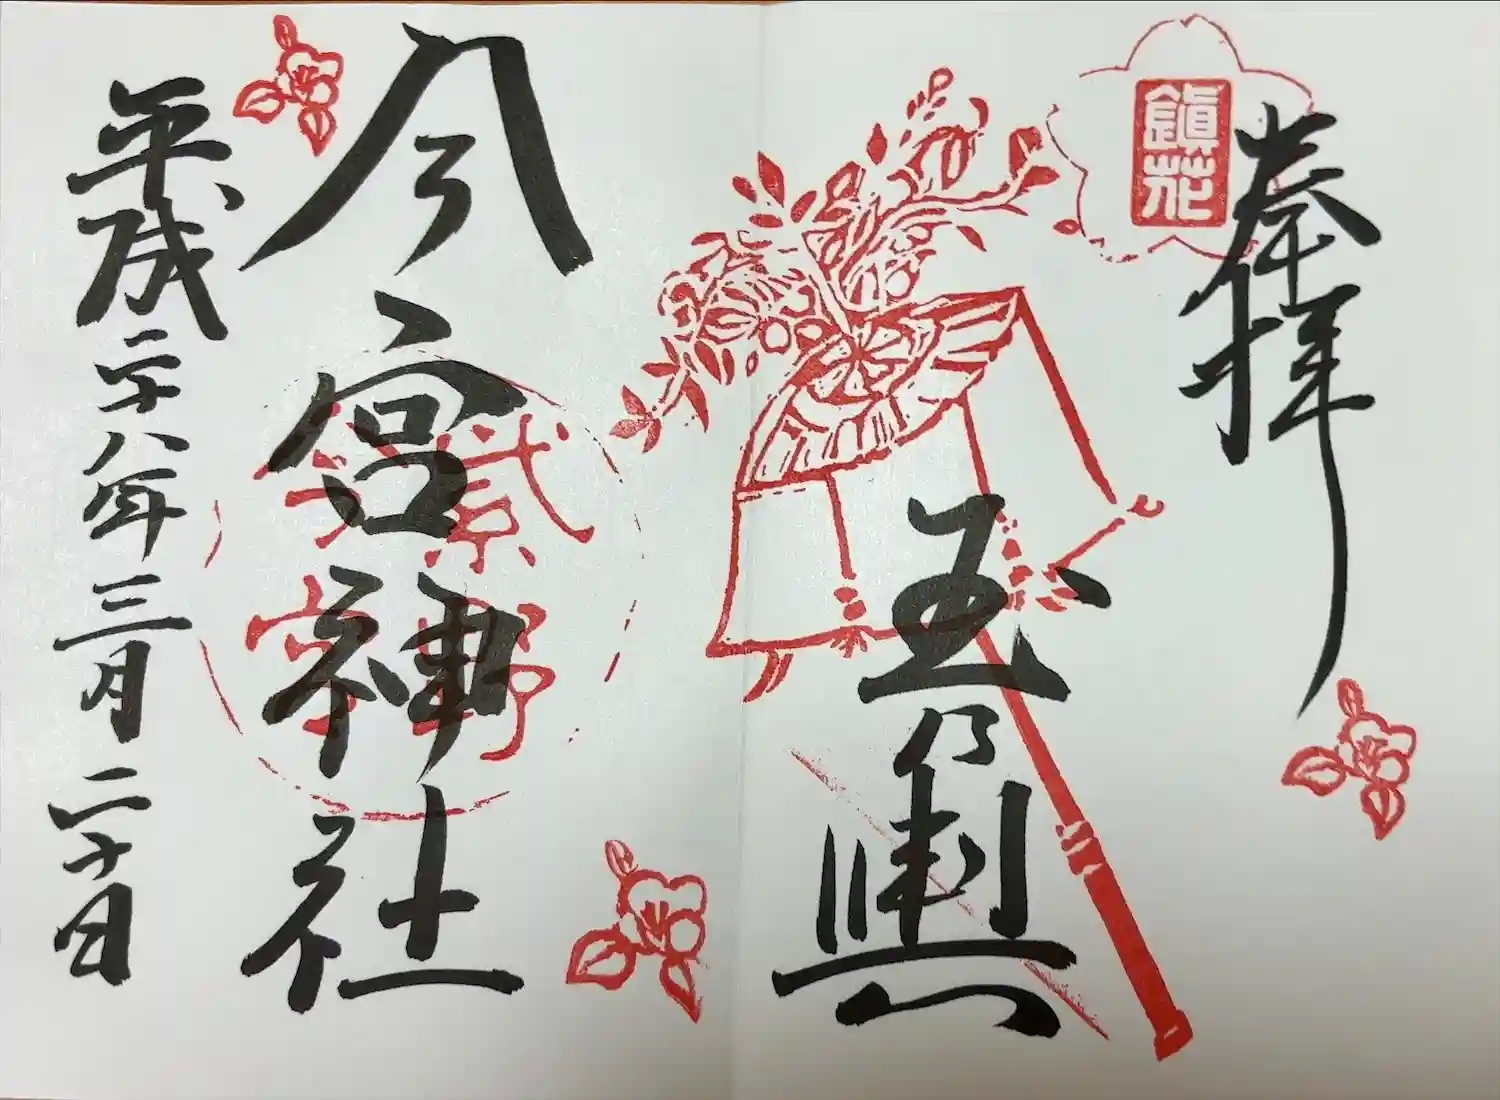 奉拝
鎭花
玉乃輿
今宮神社
紫野
今宮
平成二十八年三月二十日